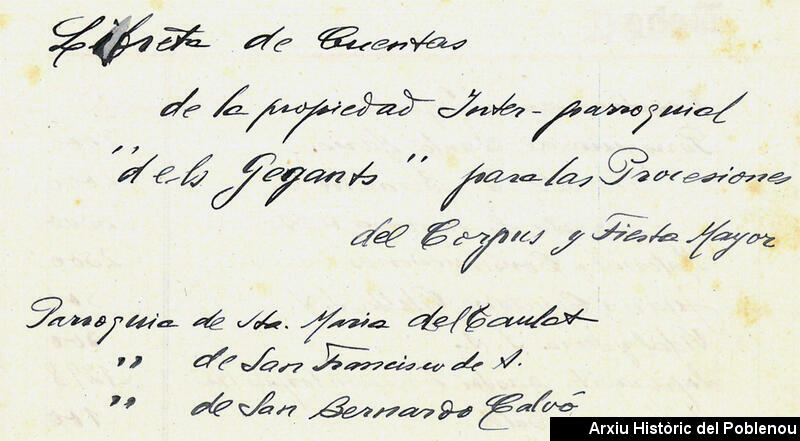 Libreta de Cuentas
de la propiedad Inter-parroquial
"dels Gegants" para las Procesiones
del Corpus y Fiesta Mayor
Parroquia de Sta. Maria del Taulat
" de San Francisco de A.
" de San Bernardo Calvó
Arxiu Històric del Poblenou